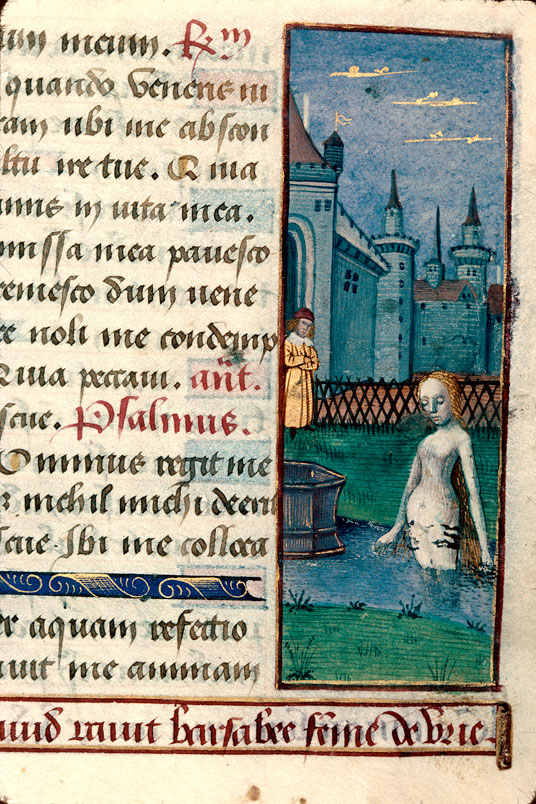 um meum. R̃m
quando veneris iu
ram ubi me abscon
ltu ire tue. Quia
nimis in uita mea.
missa mea pauesco
remesco dum uene
re noli me condemp
Quia peccaui. añt.
scue. Psalmus.
Ominus regit me
z nichil michi deerit
scue. Ibi me colloca
er aquam refectio
auit me animam
auid rauit barsabee feme de vrie.